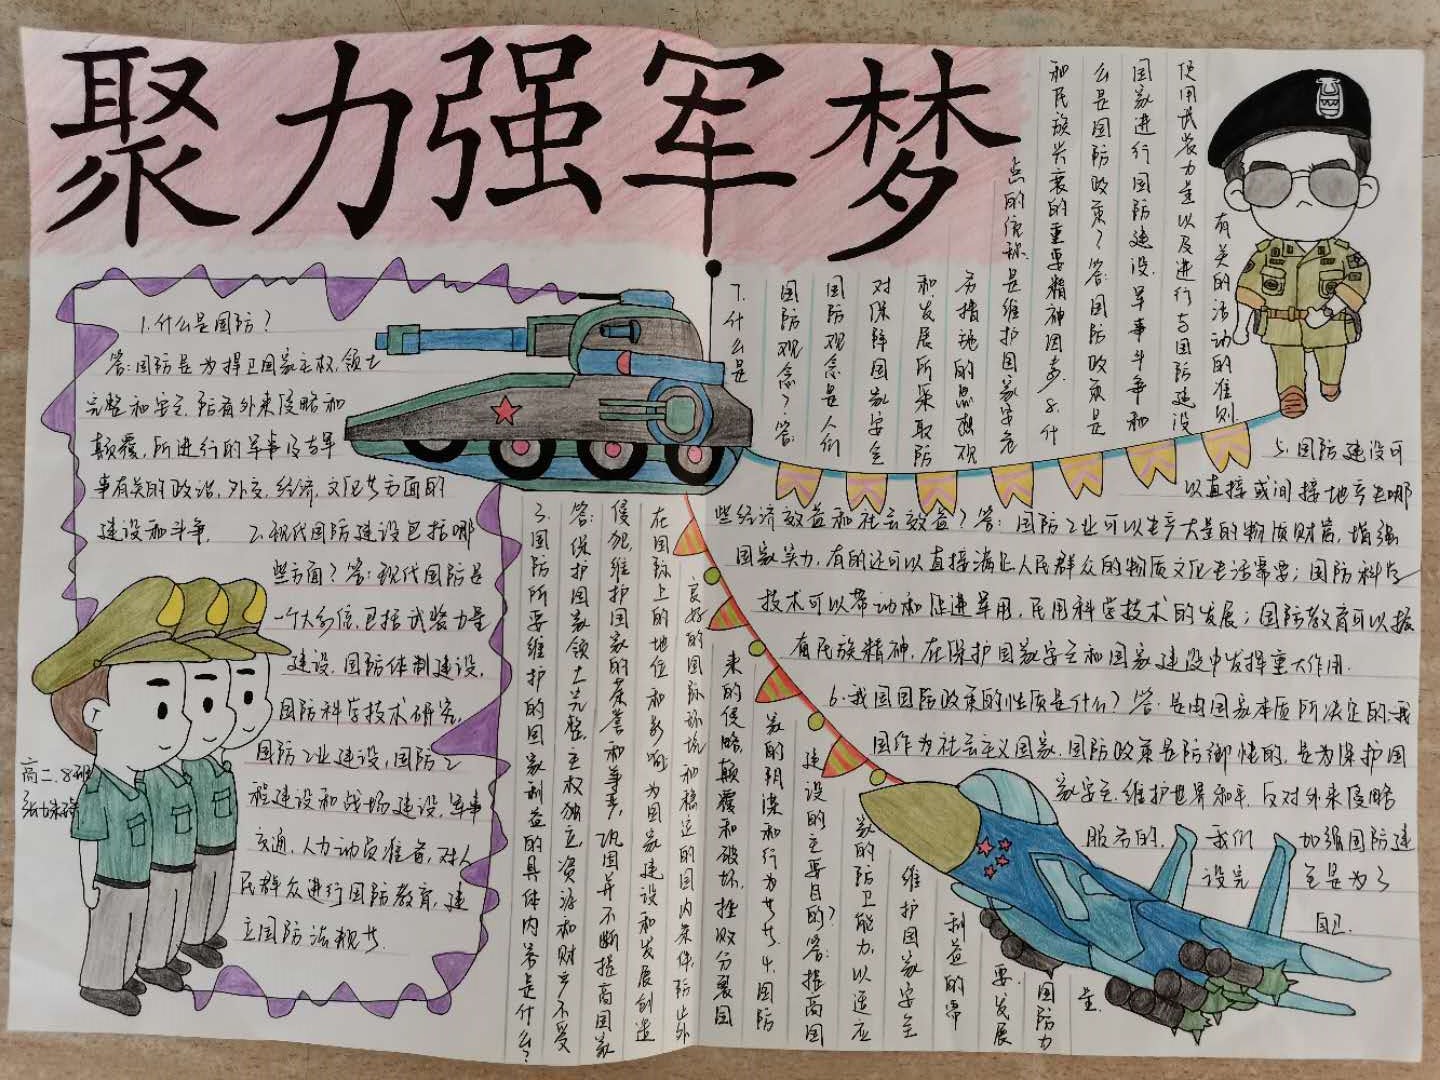 聚力强军梦
1.什么是国防?
答:国防是为捍卫国家主权,领土
完整和安全,防有外来侵略和
颠覆,所进行的军事及与军
事有关的政治,外交,经济,文化等方面的
建设和斗争。 2.现代国防建设包括哪
些方面?答:现代国防是
一个大系统,包括武装力量
建设,国防体制建设,
国防科学技术研究,
国防工业建设,国防工
程建设和战场建设,军事
交通,人力动员准备,对人
民群众进行国防教育,建
立国防法规等.
高二.8班
3.国防所要维护的国家利益的具体内容是什么?
答:保护国家领土完整,主权独立,资源和财产不受
侵犯,维护国家的荣誉和尊严,巩固并不断提高国家
在国际上的地位和影响,为国家建设和发展创造
良好的国际环境和稳定的国内条件,防止外
来的侵略,颠覆和破坏,挫败分裂国
家的阴谋和行为等等.4.国防
建设的主要目的?答:提高国
家的防卫能力,以适应
维护国家安全
利益的需
要,发展
国防力
量.
5.国防建设可
以直接或间接地产生哪
些经济效益和社会效益?答:国防工业可以生产大量的物质财富,增强
国家实力,有的还可以直接满足人民群众的物质文化生活需要;国防科学
技术可以带动和促进军用,民用科学技术的发展;国防教育可以振
有民族精神,在保护国家安全和国家建设中发挥重大作用.
6.我国国防政策的性质是什么?答:是由国家本质所决定的.我
国作为社会主义国家.国防政策是防御性的,是为保护国
家安全.维护世界和平,反对外来侵略
服务的. 我们 加强国防建
设完 全是为了
自卫.
7.什么是
国防观念?答:
国防观念是人们
对保障国家安全
和发展所采取防
务措施的思想观
点的统称.是维护国家安危
和民族兴衰的重要精神因素.8.什
么是国防政策?答:国防政策是
国家进行国防建设.军事斗争和
使用武装力量以及进行与国防建设
有关的活动的准则